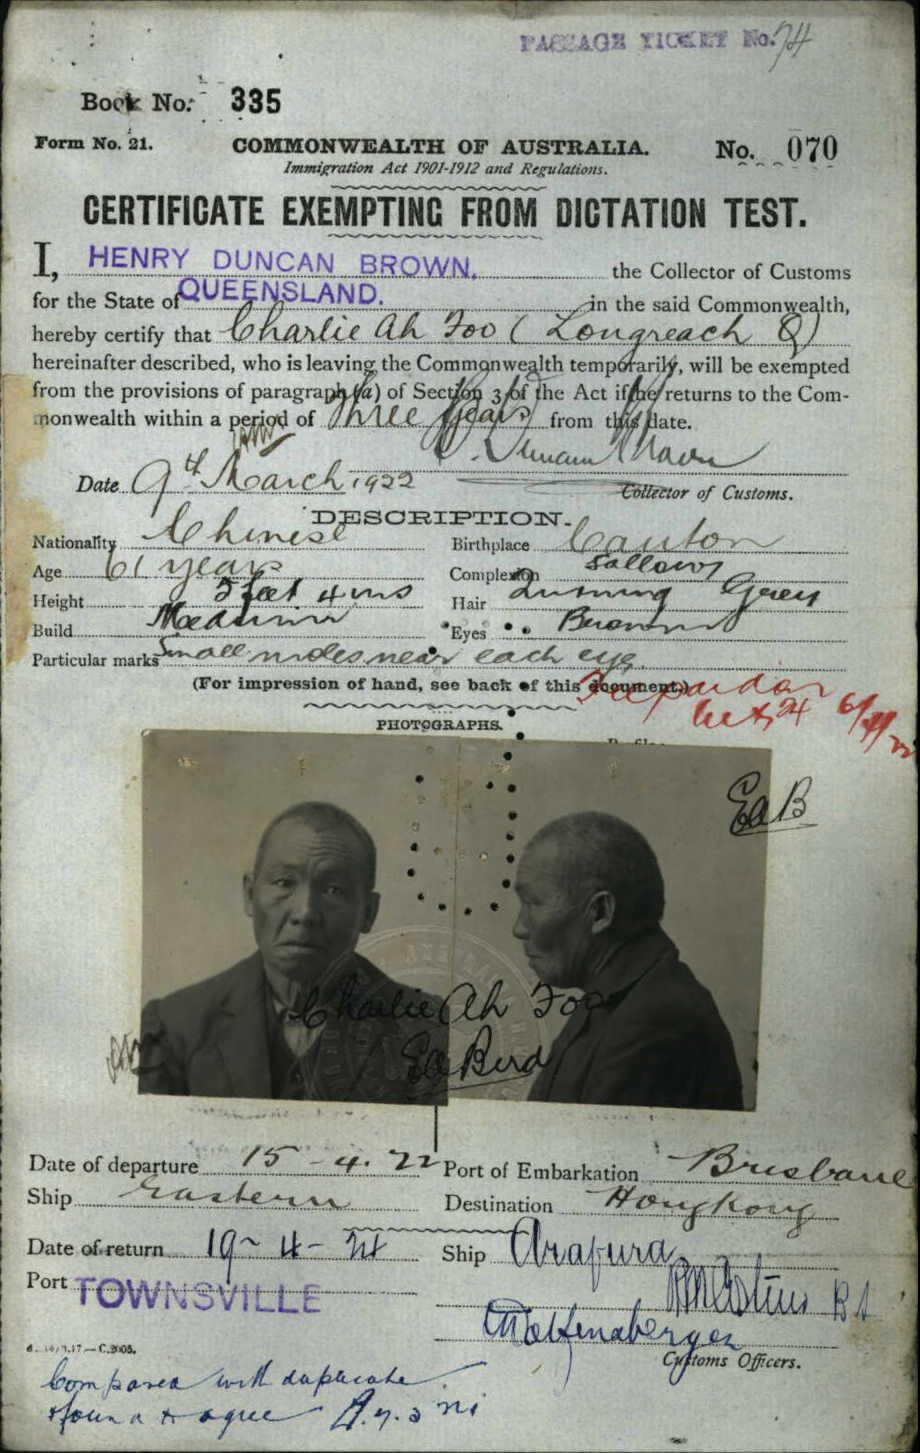 PASSAGE TICKET No. 74
Book No. 335
Form No. 21. COMMONWEALTH OF AUSTRALIA. No. 070
Immigration Act 1901-1912 and Regulations.
CERTIFICATE EXEMPTING FROM DICTATION TEST.
I, HENRY DUNCAN BROWN, the Collector of Customs
for the State of QUEENSLAND. in the said Commonwealth,
hereby certify that Charlie Ah Foo (Longreach Q)
hereinafter described, who is leaving the Commonwealth temporarily, will be exempted
from the provisions of paragraph (a) of Section 3 of the Act if he returns to the Com-
monwealth within a period of Three Years from this date.
Date 9th March 1922
Collector of Customs.
DESCRIPTION.
Nationality Chinese Birthplace Canton
Age 61 years Complexion Sallow
Height 5 feet 4 ins Hair Turning Grey
Build Medium Eyes Brown
Particular marks Small moles near each eye
(For impression of hand, see back of this document.)
PHOTOGRAPHS.
EaB
Charlie Ah Foo
Ea Bird
Date of departure 15-4.22 Port of Embarkation Brisbane
Ship Eastern Destination Hongkong
Date of return 19-4-24 Ship Arafura
Port TOWNSVILLE
Customs Officers.
Compared with duplicate
found to agree